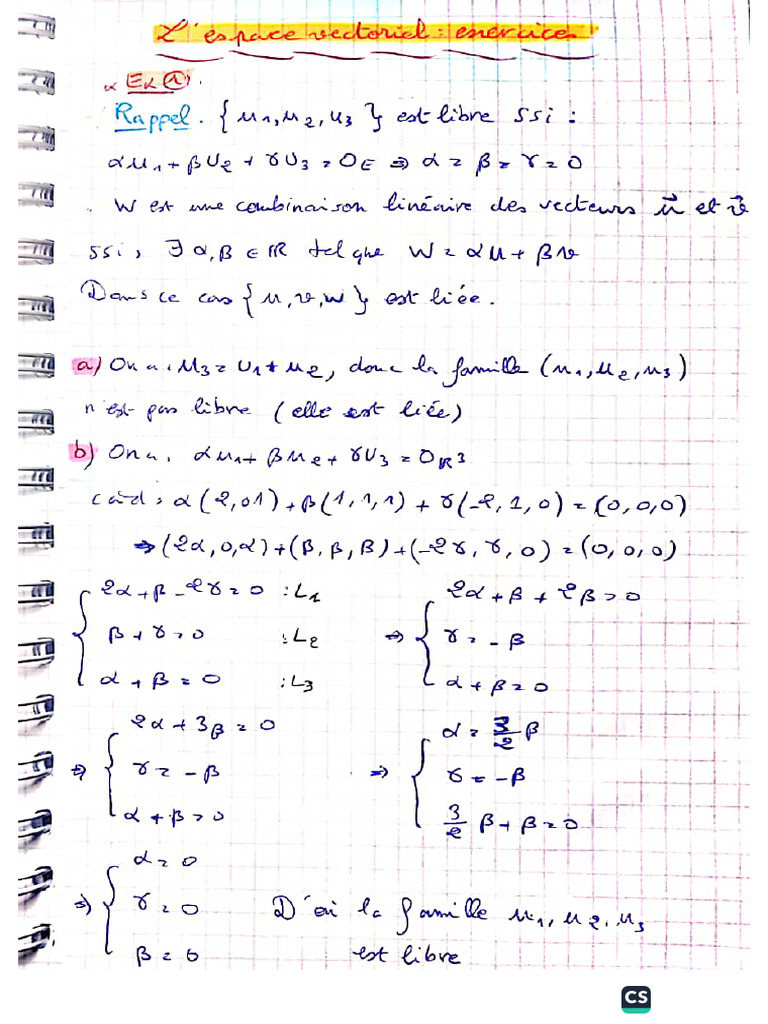 L'espace vectoriel : exercice
Ex ①.
Rappel. {u1, u2, u3} est libre ssi :
αu1 + βU2 + γU3 = 0E ⇒ α = β = γ = 0
. W est une combinaison linéaire des vecteurs u⃗ et v⃗
ssi, ∃ α, β ∈ IR tel que W = αu + βv
Dans ce cas {u, v, w} est liée.
a) On a : U3 = U1 + U2, donc la famille (u1, u2, u3)
n'est pas libre (elle est liée)
b) On a, αu1 + βu2 + γU3 = 0IR3
càd, α(2,01) + β(1,1,1) + γ(-2,1,0) = (0,0,0)
⇒ (2α,0,α) + (β,β,β) + (-2γ,γ,0) = (0,0,0)
{ 2α + β - 2γ = 0 : L1
β + γ = 0 : L2
α + β = 0 : L3
⇒ { 2α + β + 2β = 0
γ = - β
α + β = 0
⇒ { 2α + 3β = 0
γ = - β
α + β = 0
⇒ { α = 3/2 β
γ = -β
3/2 β + β = 0
⇒ { α = 0
γ = 0
β = 0
D'où la famille u1, u2, u3
est libre
CS